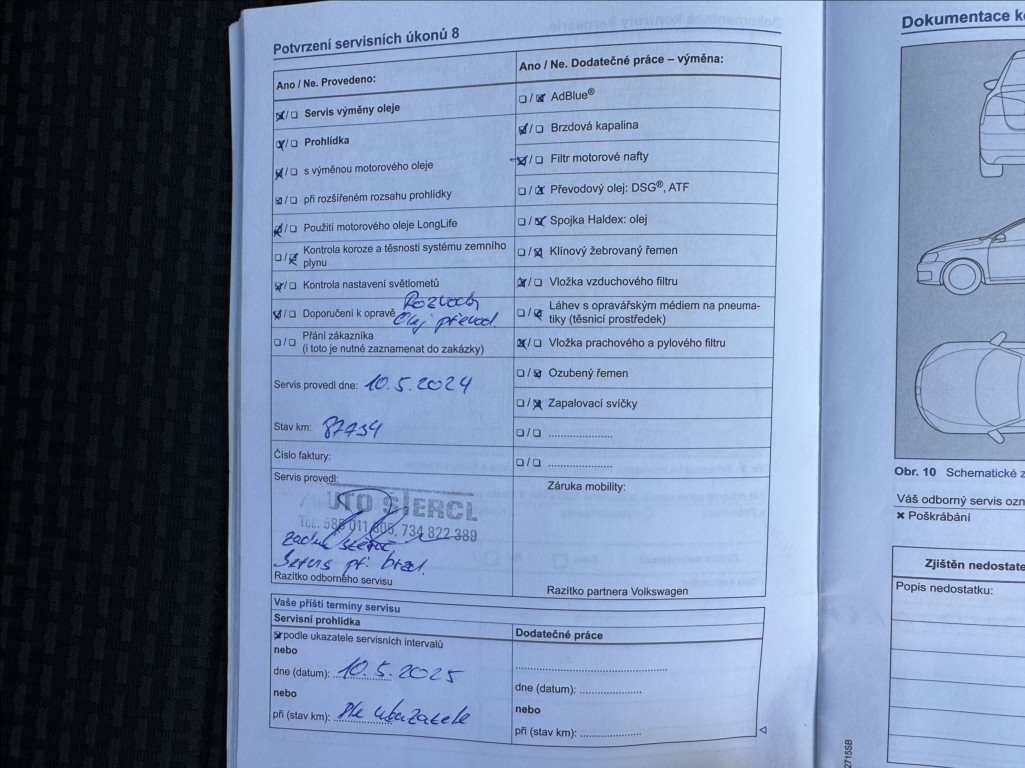 Potvrzení servisních úkonů 8
Ano / Ne. Provedeno:
Servis výměny oleje
Prohlídka
s výměnou motorového oleje
při rozšířeném rozsahu prohlídky
Použití motorového oleje LongLife
Kontrola koroze a těsnosti systému zemního
plynu
Kontrola nastavení světlometů
Doporučení k opravě Rozvody
Olej převod.
Přání zákazníka
(i toto je nutné zaznamenat do zakázky)
Servis provedl dne: 10.5.2024
Stav km: 87734
Číslo faktury:
Servis provedl:
AUTO STERCL
TEL. 585 011 805, 734 822 389
Servis př. brzd.
Razítko odborného servisu
Ano / Ne. Dodatečné práce – výměna:
AdBlue®
Brzdová kapalina
Filtr motorové nafty
Převodový olej: DSG®, ATF
Spojka Haldex: olej
Klínový žebrovaný řemen
Vložka vzduchového filtru
Láhev s opravářským médiem na pneuma-
tiky (těsnicí prostředek)
Vložka prachového a pylového filtru
Ozubený řemen
Zapalovací svíčky
Záruka mobility:
Razítko partnera Volkswagen
Vaše příští termíny servisu
Servisní prohlídka
podle ukazatele servisních intervalů
nebo
dne (datum): 10.5.2025
nebo
při (stav km): dle ukazatele
Dodatečné práce
dne (datum):
nebo
při (stav km):
Dokumentace k
Obr. 10 Schematické z
Váš odborný servis ozn
× Poškrábání
Zjištěn nedostate
Popis nedostatku:
2715SB